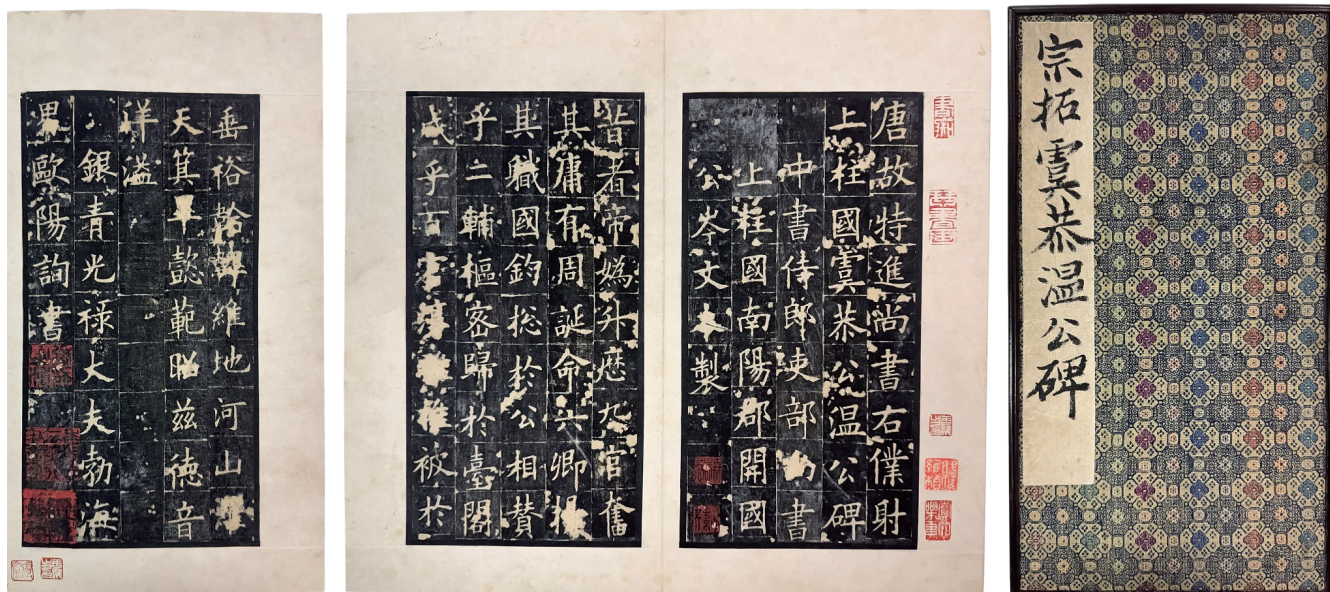 宗拓虞恭温公碑
唐故特進尚書右僕射
上柱國虞恭公温公碑
中書侍郎吏部書
上柱國南陽郡開國
公岑文本製
昔者帝媯升歷九官奮
其庸有周誕命六卿揚
其職國鈞揔於公相贊
乎二輔樞密歸於臺閣
乎百被於
垂裕維地河山
天箕懿範昭兹德音
洋溢
銀青光祿大夫勃海
男歐陽詢書